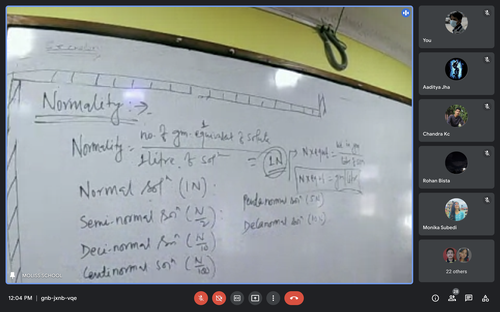 Normality :→
Normality = no. of gm. equivalent of solute
1 litre of solⁿ
= 1N
Normal solⁿ (1N)
Semi-normal solⁿ (N/2)
Deci-normal solⁿ (N/10)
Centinormal solⁿ (N/100)
N×eq.wt =
N×eq.wt =
Penta normal solⁿ (5N)
Decanormal solⁿ
MOLISS SCHOOL
You
Aaditya Jha
Chandra Kc
Rohan Bista
Monika Subedi
22 others
12:04 PM | gnb-jxnb-vqe
28